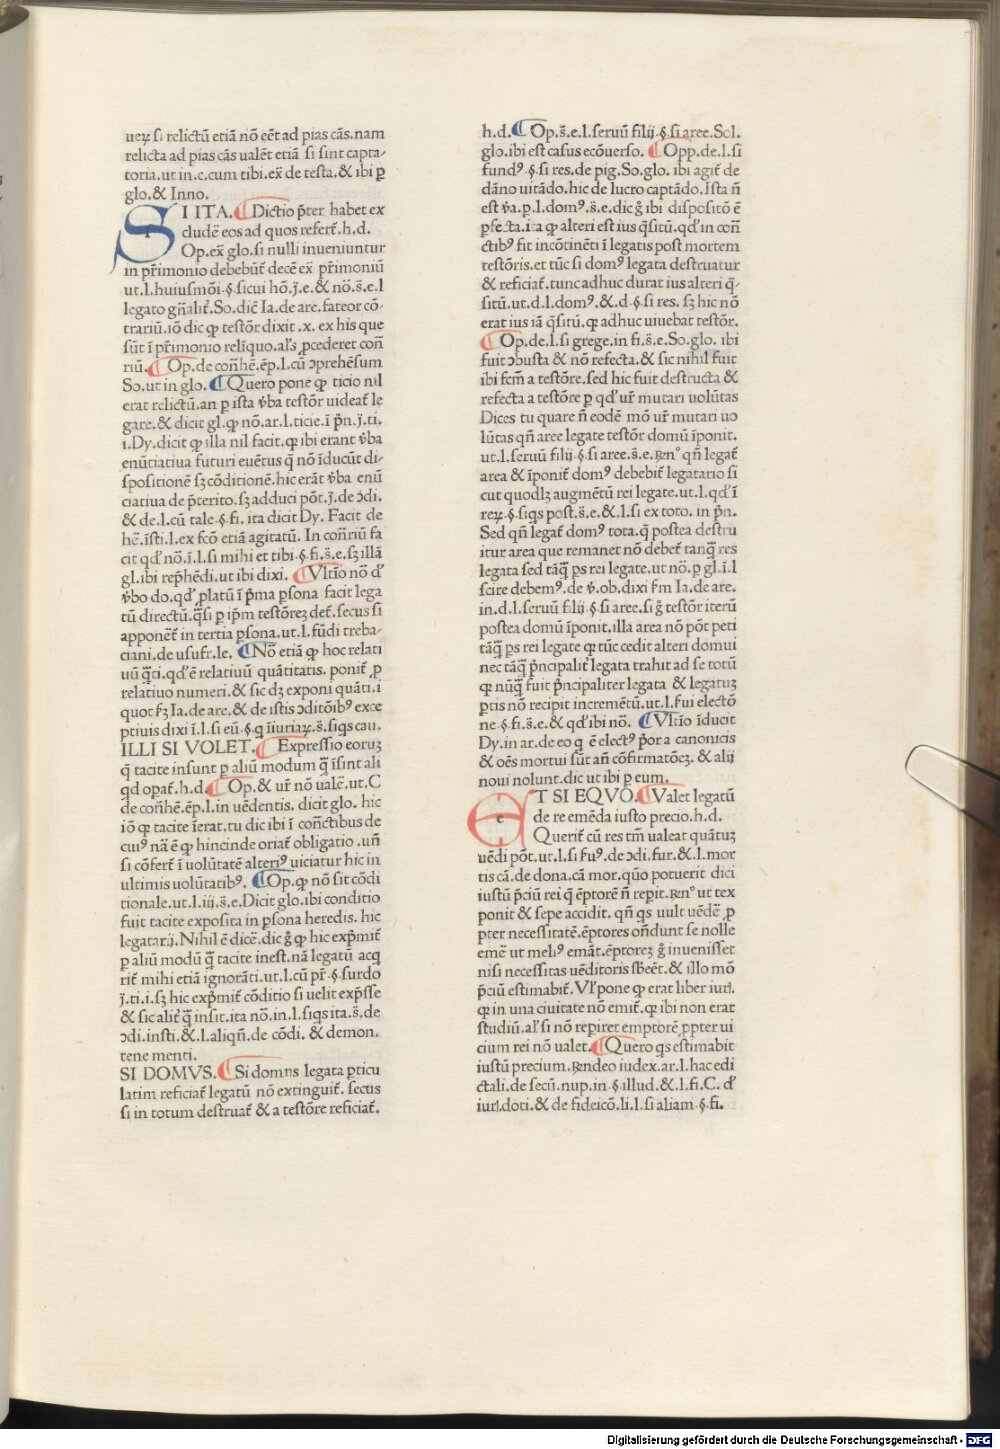 ueꝝ si relictũ etiã nõ eẽt ad pias cãs. nam
relicta ad pias cãs ualẽt etiã si sint capta-
toria. ut in .c. cum tibi. ex̃ de testa. & ibi ꝑ
glo. & Inno.
SI ITA. ¶ Dictio p̃ter habet ex
cludẽ eos ad quos refert̃. h.d.
Op. ex̃ glo. si nulli inueniuntur
in pr̃imonio debebũt̃ decẽ ex̃ pr̃imoniũ
ut.l. huiusmõi.§. si cui hõ.j.e.& nõ.s̃.e.l
legato gñalit̃. So. dic̃t Ia. de are. fateor cõ-
trariũ. iõ dic ꝙ testõr dixit .x. ex his que
sũt ĩ pr̃imonio reliquo. al's ꝓcederet con̄
riũ. ¶ Op. de con̄hẽ. ẽp. l. cũ ↄprehẽsum
So. ut in glo. ¶ Quero pone ꝙ ticio nil
erat relictũ. an ꝑ ista ṽba testõr uideat̃ le
gare. & dicit gl. ꝙ nõ. ar. l. ticie. ĩ p̃n. j. ti.
1. Dy. dicit ꝙ illa nil facit. ꝙ ibi erant ṽba
enũtiatiua futuri euẽtus q̃ nõ ĩducũt di-
spositionẽ sꝫ cõditionẽ. hic erãt ṽba enũ
ciatiua de p̃terito. sꝫ adduci põt. j̃. de ↄdi.
& de. l. cũ tale .§. fi. ita dicit Dy. Facit de
hẽ. ĩsti. l. ex fcõ etiã agitatũ. In con̄riũ fa
cit qd' nõ. ĩ. l. si mihi et tibi .§. fi. s̃. e. sꝫ illã
gl. ibi rep̃hẽdi. ut ibi dixi. ¶ Vltĩo nõ d'
ṽbo do. qd' ꝓlatũ ĩ p̃ma ꝑsona facit lega
tũ directũ. q̃si ꝑ ip̃m testõreꝫ det̃. secus si
apponẽt̃ in tertia ꝑsona. ut. l. fũdi treba-
ciani. de usufr. le. ¶ Nõ etiã ꝙ hoc relati
uũ q̃ti. qd' ẽ relatiuũ quãtitatis. ponit̃ ꝓ
relatiuo numeri. & sic dꝫ exponi quãti. i
quot sꝫ Ia. de are. & de istis ↄditõibꝰ exce
ptiuis dixi ĩ. l. si eũ .§. q ĩiuriaꝝ. s̃. siqs cau.
ILLI SI VOLET. ¶ Expressio eoruꝫ
q̃ tacite insunt ꝑ aliũ modum q̃ ĩsint ali
qd opat̃. h. d. ¶ Op. & ur̃ nõ ualẽ. ut. C
de con̄hẽ. ẽp. l. in uẽdentis. dicit glo. hic
iõ ꝙ tacite ĩerat. tu dic ibi ĩ con̄ctibus de
cuiꝰ nã ẽ ꝙ hincinde oriat̃ obligatio . un̄
si cõfert̃ ĩ uolũtatẽ alteriꝰ uiciatur hic in
ultimis uolũtatibꝰ. ¶ Op. ꝙ nõ sit cõdi
tionale. ut. l. iij. s̃. e. Dicit glo. ibi conditio
fuit tacite exposita in ꝑsona heredis. hic
legatarij. Nihil ẽ dicẽ. dic g̊ ꝙ hic exp̃mit̃
ꝑ aliũ modũ q̃ tacite inest. nã legatũ acq
rit̃ mihi etiã ignorãti. ut. l. cũ pr̃ .§. surdo
j̃. ti. i. sꝫ hic exp̃mit̃ cõditio si uelit exp̃sse
& sic alit̃ q̃ insit. ita nõ. in. l. siqs ita. s̃. de
ↄdi. insti. &. l. aliqn̄. de cõdi. & demon.
tene menti.
SI DOMVS. ¶ Si domns legata ꝑticu
latim reficiat̃ legatũ nõ extinguit̃. secus
si in totum destruat̃ & a testõre reficiat̃.
h. d. ¶ Op. s̃. e. l. seruũ filij .§. si aree. Sol.
glo. ibi est casus ecõuerso. ¶ Opp. de. l. si
fundꝰ .§. si res. de pig. So. glo. ibi agit̃ de
dãno uitãdo. hic de lucro captãdo. Ista n̄
est ṽa. ꝑ. l. domꝰ. s̃. e. dic g̊ ibi dispositõ ẽ
ꝑfecta. ita ꝙ alteri est ius q̃situ. qd' in con̄
ctibꝰ fit incõtinẽti ĩ legatis post mortem
testõris. et tũc si domꝰ legata destruatur
& reficiat̃. tunc adhuc durat ius alteri q̃-
situ. ut. d. l. domꝰ. & .d .§. si res. sꝫ hic nõ
erat ius iã q̃situ. ꝙ adhuc uiuebat testõr.
¶ Op. de. l. si grege. in fi. s̃. e. So. glo. ibi
fuit ↄbusta & nõ refecta. & sic nihil fuit
ibi fcm̃ a testõre. sed hic fuit destructa &
refecta a testõre ꝑ qd' ur̃ mutari uolũtas
Dices tu quare n̄ eodẽ mõ ur̃ mutari uo
lũtas qn̄ aree legate testõr domũ ĩponit.
ut. l. seruũ filij .§. si aree. s̃. e. Rn̄º qn̄ legat̃
area & ĩponit̃ domꝰ debebit̃ legatario si
cut quodlꝫ augmẽtũ rei legate. ut. l. qd' ĩ
reꝝ .§. siqs post. s̃. e. &. l. si ex toto. in p̃n.
Sed qn̄ legat̃ domꝰ tota. q̃ postea destru
itur area que remanet nõ debet̃ tanq̃ res
legata sed tãq̃ ꝑs rei legate. ut nõ. ꝑ gl. ĩ. l
scire debemꝰ. de ṽ. ob. dixi sm̃ Ia. de are.
in. d. l. seruũ filij .§. si aree. si g̊ testõr iterũ
postea domũ ĩponit. illa area nõ põt peti
tãq̃ ꝑs rei legate ꝙ tũc cedit alteri domui
nec tãq̃ p̃ncipalit̃ legata trahit ad se totũ
ꝙ nũq̃ fuit p̃ncipaliter legata & legatuꝫ
ꝑtis nõ recipit incremẽtũ. ut. l. fui electõ
ne .§. fi. s̃. e. & qd' ibi nõ. ¶ Vltĩo ĩducit
Dy. in ar. de eo q ẽ electꝰ p̃or a canonicis
& oẽs mortui sũt an̄ cõfirmatõeꝫ. & alij
noui nolunt. dic ut ibi ꝑ eum.
ET SI EQVO. ¶ Valet legatũ
de re emẽda iusto precio. h. d.
Querit̃ cũ res tm̃ ualeat quãtuꝫ
uẽdi põt. ut. l. si fuꝰ. de ↄdi. fur. &. l. mor
tis cã. de dona. cã mor. quo potuerit dici
iustũ p̃ciũ rei q ẽptorẽ n̄ repit. Rn̄º ut tex
ponit & sepe accidit. qn̄ qs uult uẽdẽ ꝓ
pter necessitatẽ. ẽptores on̄dunt se nolle
emẽ ut meliꝰ emãt. ẽptoreꝫ g̊ inuenisset
nisi necessitas uẽditoris sb̃eẽt. & illo mõ
p̃ciũ estimabit̃. Vl' pone ꝙ erat liber iurl.
ꝙ in una ciuitate nõ emit̃. ꝙ ibi non erat
studiũ. al' si nõ repiret emptorẽ ꝓpter ui
cium rei nõ ualet. ¶ Quero qs estimabit
iustũ precium. Rn̄deo iudex. ar. l. hac edi
ctali. de secũ. nup. in .§. illud. &. l. fi. C. d'
iurl. doti. & de fideicõ. li. l. si aliam .§. fi.
Digitalisierung gefördert durch die Deutsche Forschungsgemeinschaft - DFG